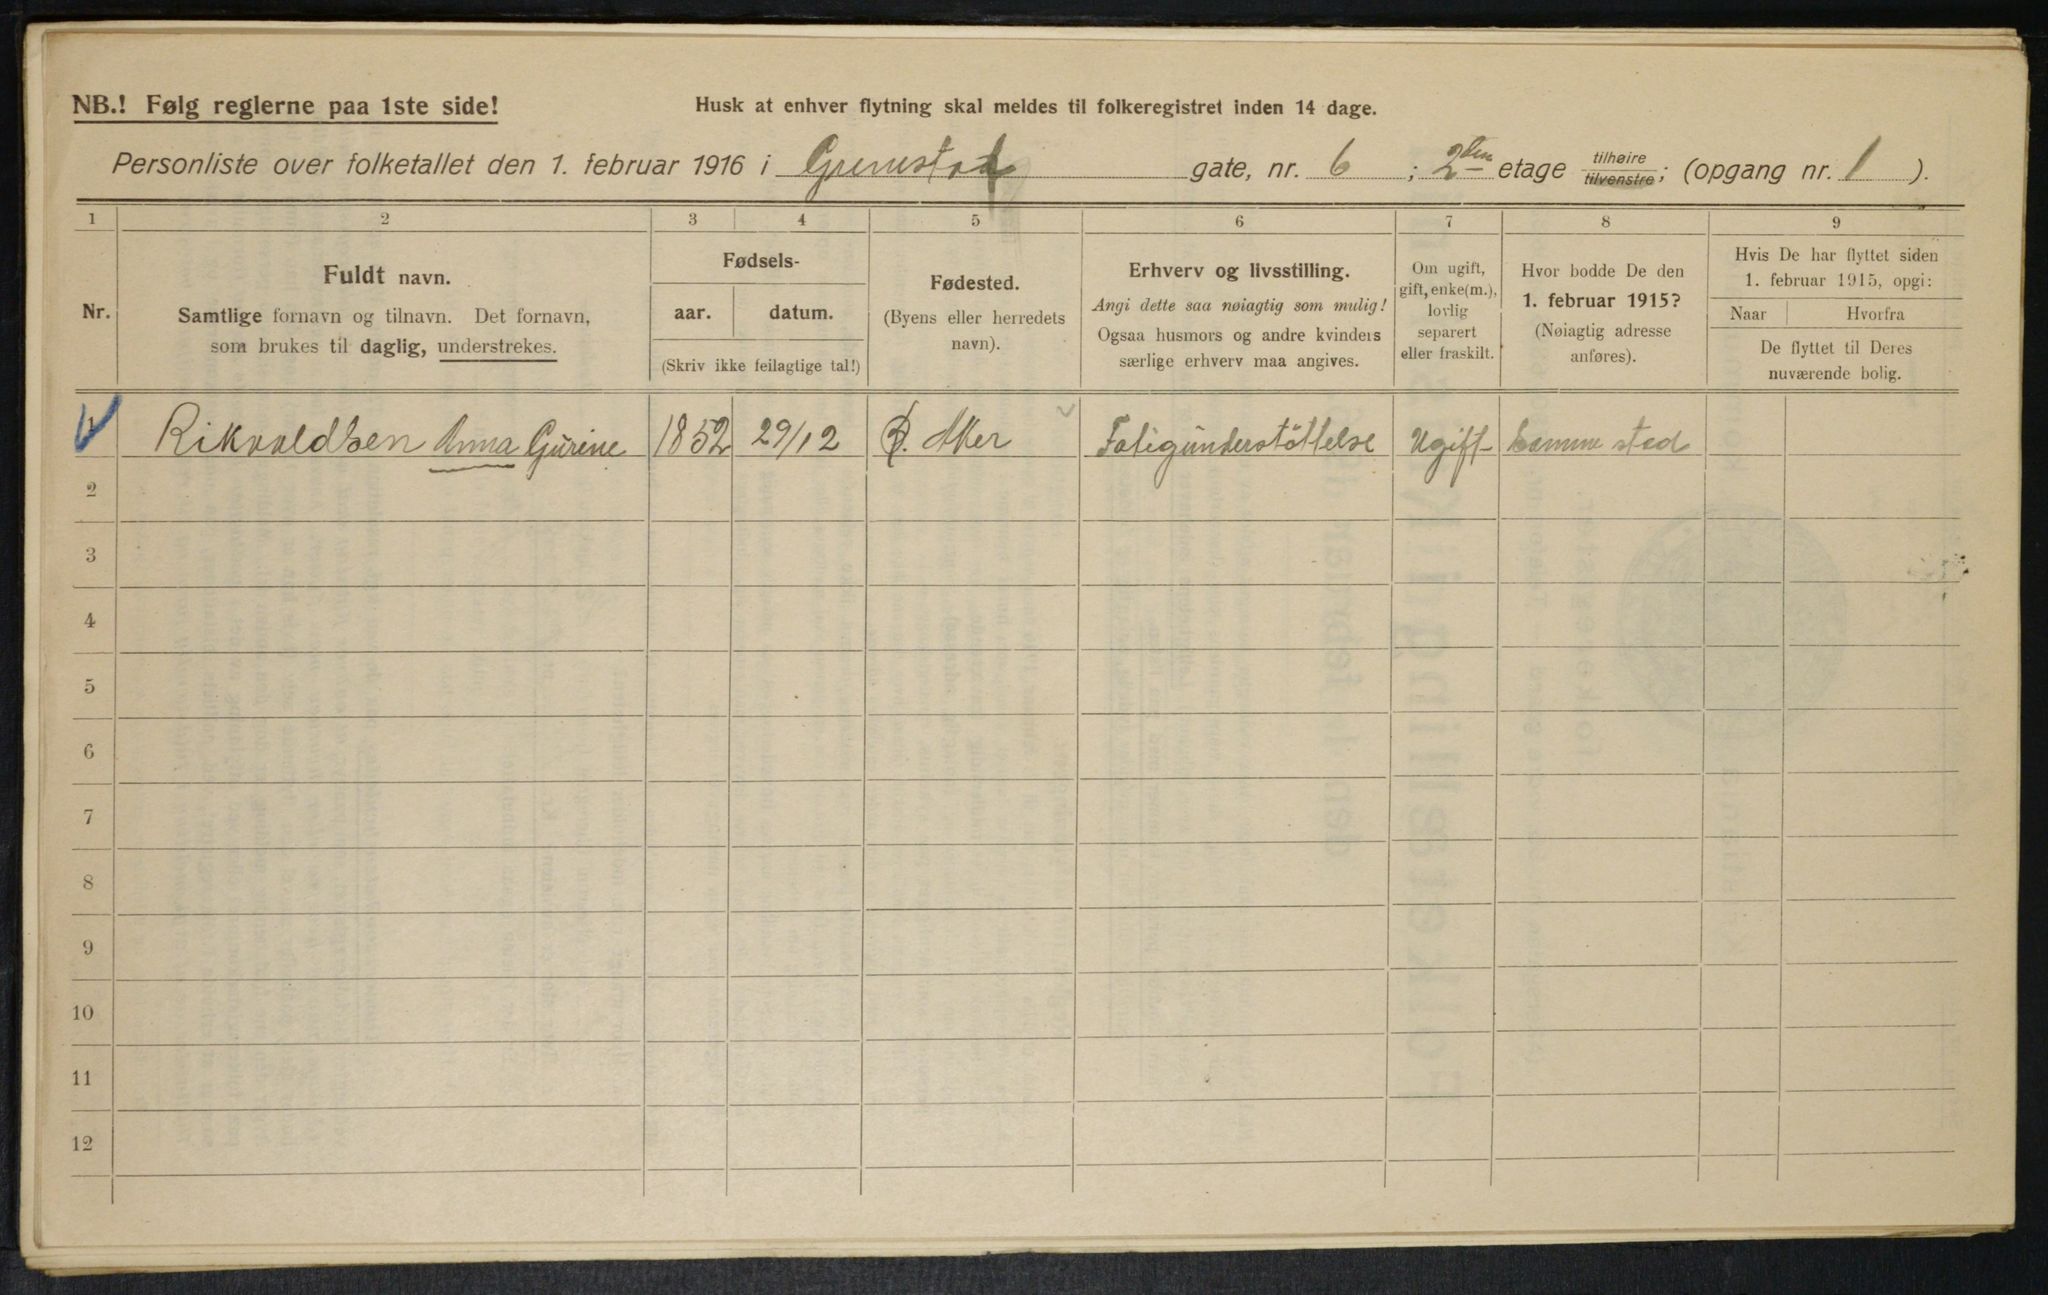 NB.! Følg reglerne paa 1ste side!
Husk at enhver flytning skal meldes til folkeregistret inden 14 dage.
Personliste over folketallet den 1. februar 1916 i Grimstad gate, nr. 6 ; 2den etage tilhøire tilvenstre; (opgang nr. 1 ).
1 2 3 4 5 6 7 8 9
Nr.
Fuldt navn.
Samtlige fornavn og tilnavn. Det fornavn,
som brukes til daglig, understrekes.
Fødsels-
aar. datum.
(Skriv ikke feilagtige tal!)
Fødested.
(Byens eller herredets
navn).
Erhverv og livsstilling.
Angi dette saa nøiagtig som mulig!
Ogsaa husmors og andre kvinders
særlige erhverv maa angives.
Om ugift,
gift, enke(m.),
lovlig
separert
eller fraskilt.
Hvor bodde De den
1. februar 1915?
(Nøiagtig adresse
anføres).
Hvis De har flyttet siden
1. februar 1915, opgi:
Naar Hvorfra
De flyttet til Deres
nuværende bolig.
1 Rikvoldsen Anna Gurine 1852 29/12 Ø. Aker Fatigunderstöttelse Ugift Samme sted
2
3
4
5
6
7
8
9
10
11
12